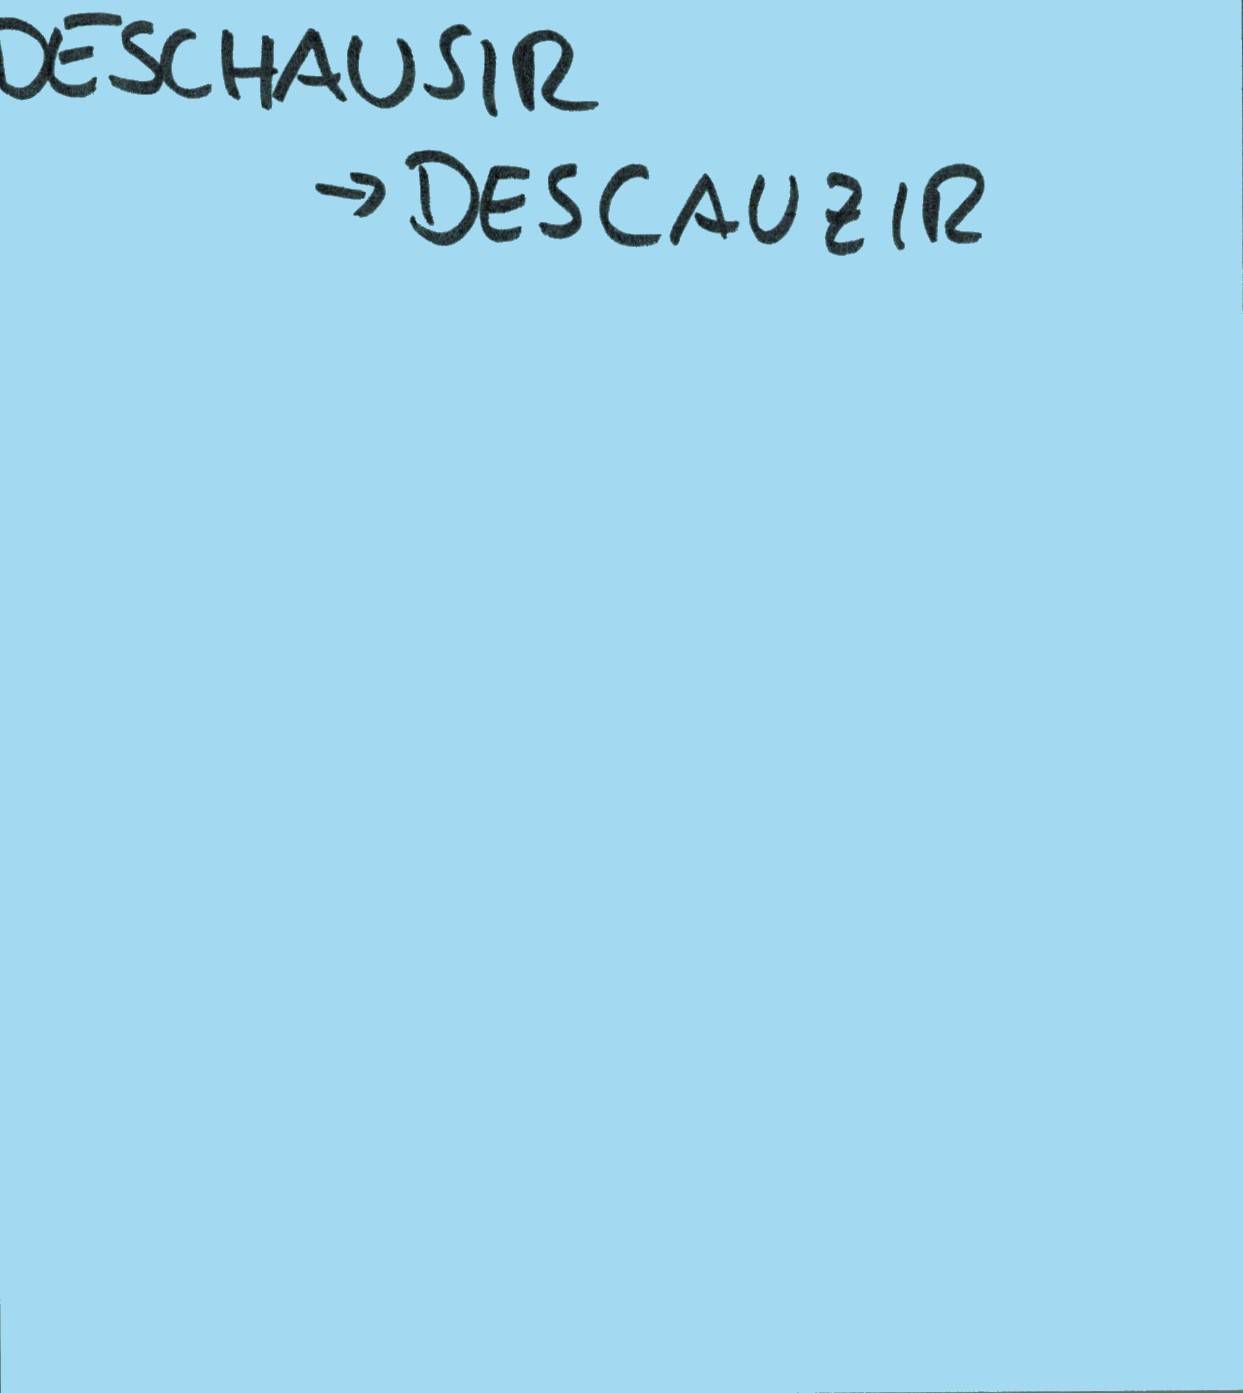 DESCHAUSIR
→ DESCAUZIR